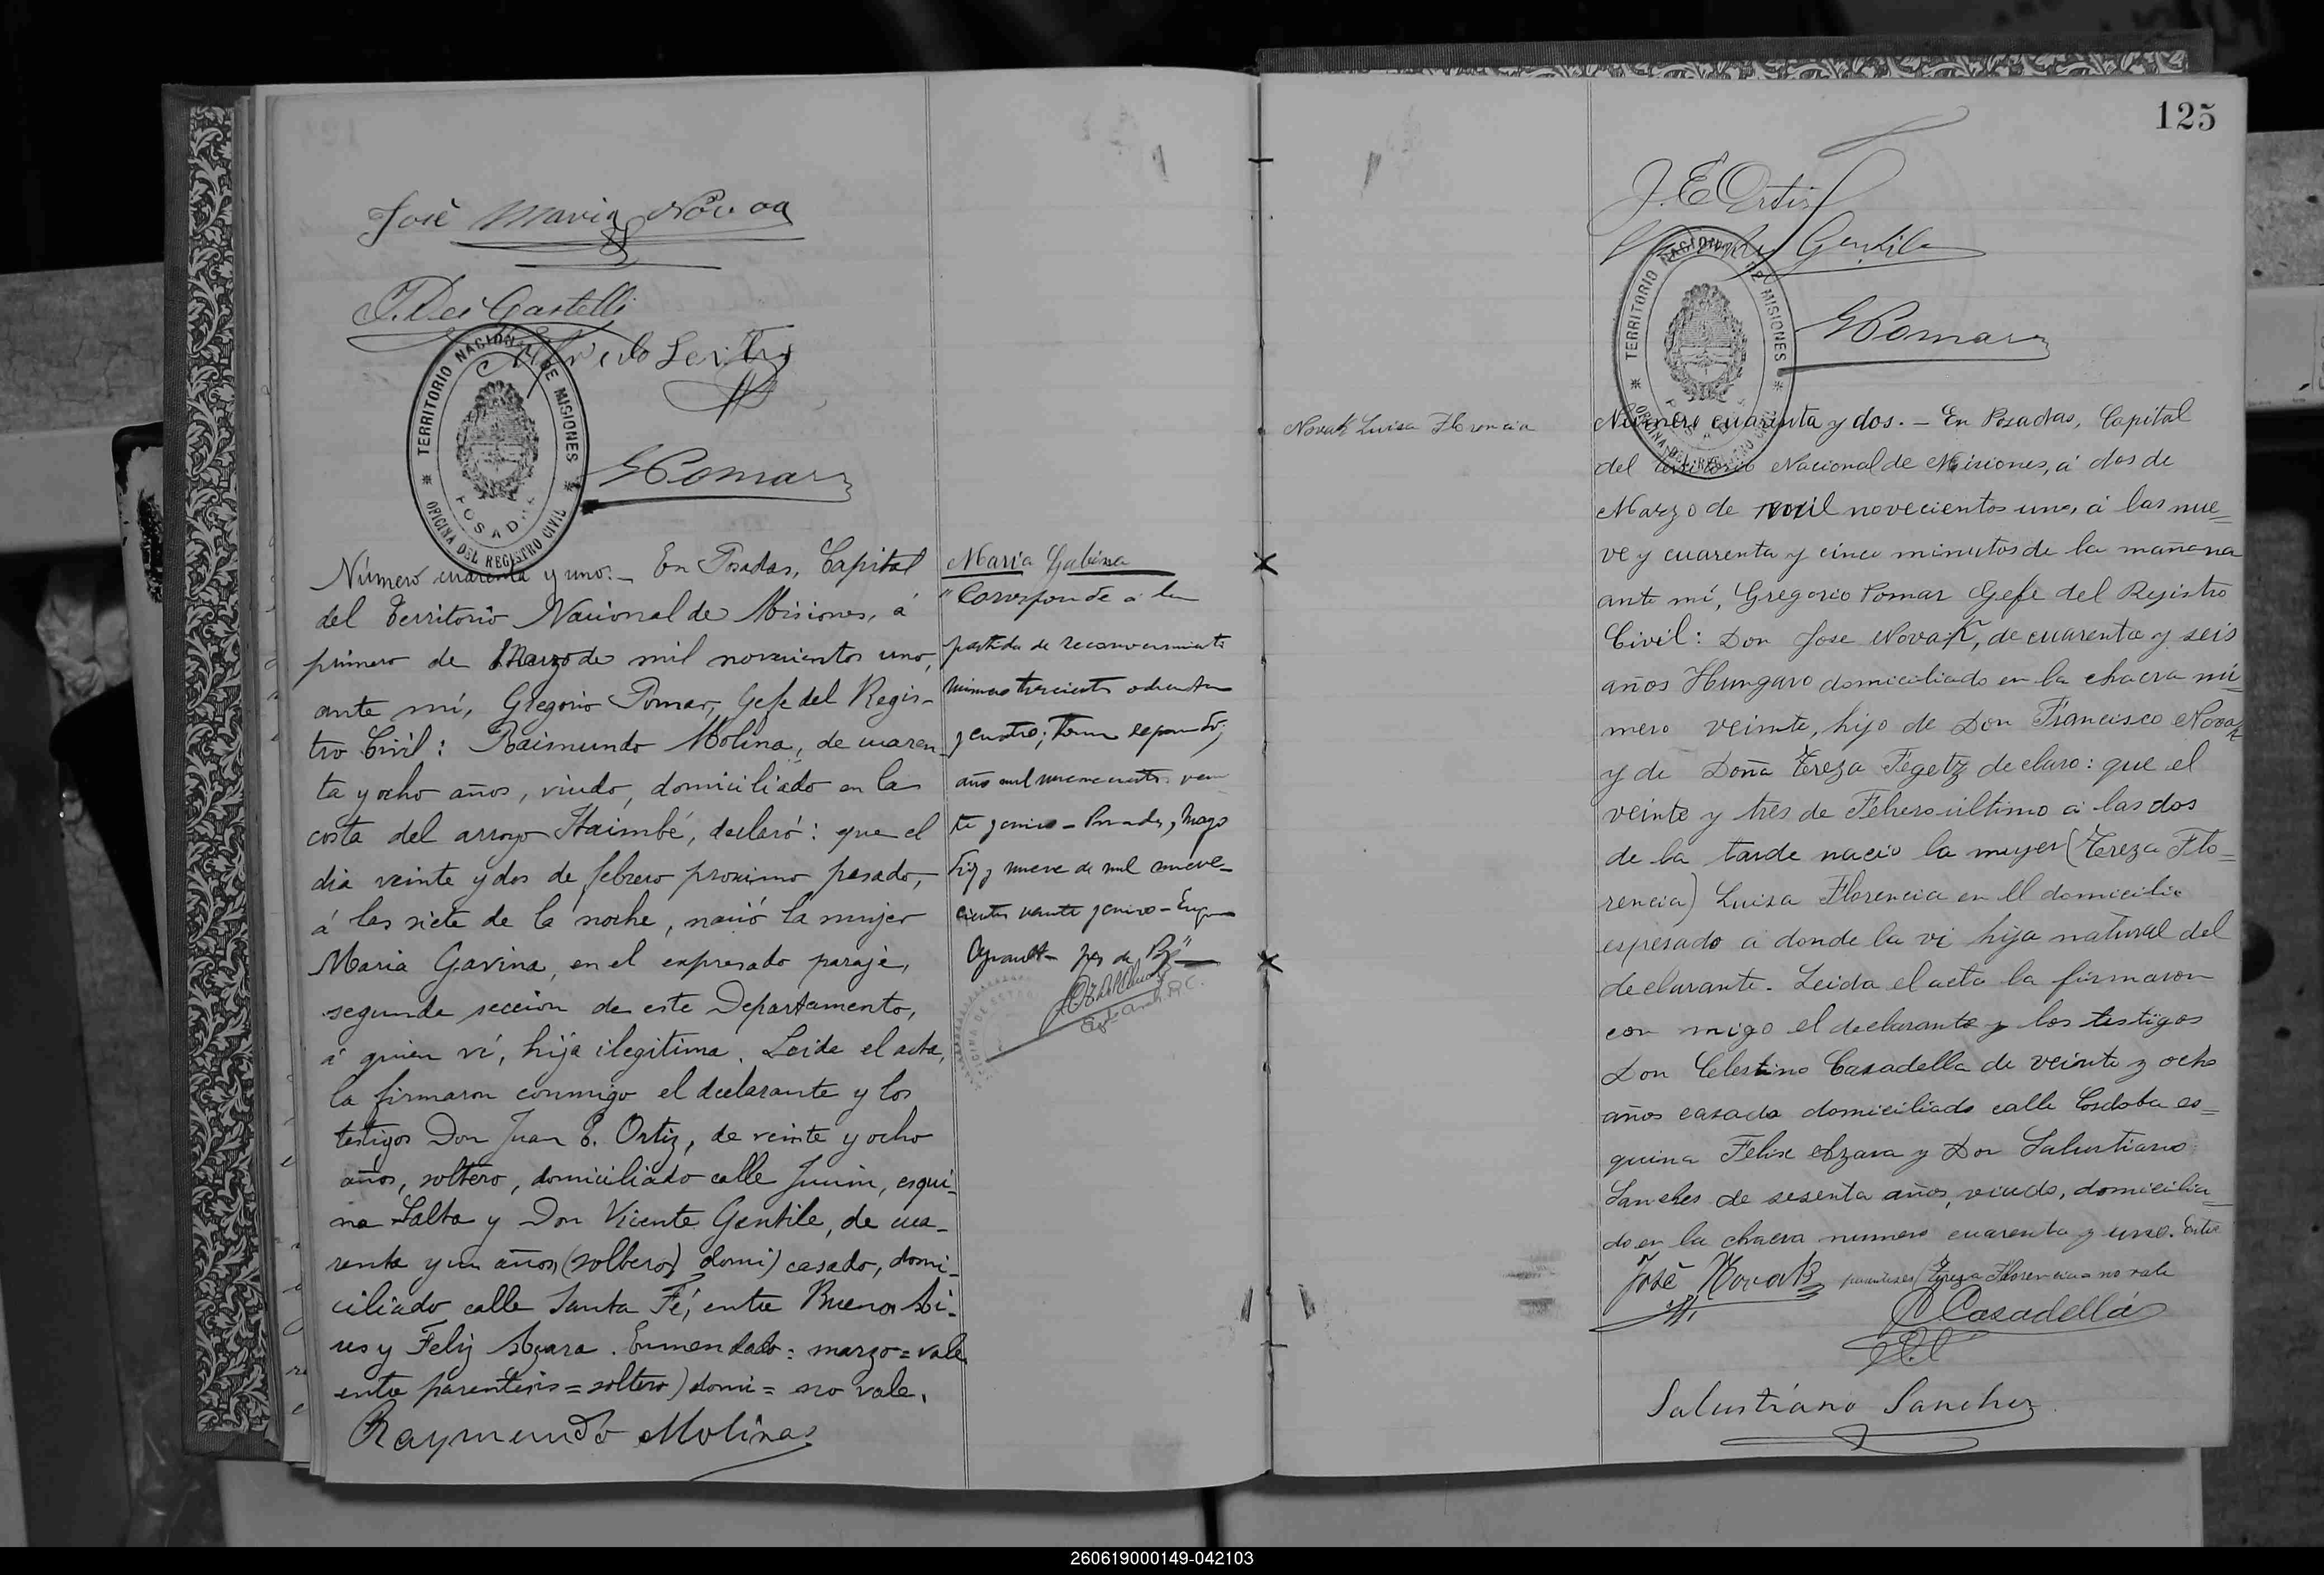 José Maria Novoa
J. Dei Castelli
TERRITORIO NACIONAL DE MISIONES
POSADAS
OFICINA DEL REGISTRO CIVIL
GPomar
Número cuarenta y uno.– En Posadas, Capital
del Territorio Nacional de Misiones, á
primero de Marzo de mil novecientos uno,
ante mí, Gregorio Pomar, Gefe del Regis-
tro Civil: Raimundo Molina, de cuaren-
ta y ocho años, viudo, domiciliado en la
costa del arroyo Itaimbé, declaró: que el
dia veinte y dos de febrero proximo pasado,
á las siete de la noche, nació la mujer
Maria Gavina, en el expresado paraje,
segunda seccion de este Departamento,
á quien ví, hija ilegitima. Leida el acta,
la firmaron conmigo el declarante y los
testigos Don Juan E. Ortiz, de veinte y ocho
años, soltero, domiciliado calle Junin, esqui-
na Salta y Don Vicente Gentile, de cua-
renta y un años, (soltero) domi) casado, domi-
ciliado calle Santa Fé, entre Buenos Ai-
res y Feliz Azara. Enmendado = marzo = vale.
entre parentesis = soltero) domi = no vale.
Raymundo Molinas
Maria Gabina
"Corresponde a la
partida de reconocimiento
número trescientos ochenta
y cuatro; tomo segundo;
año mil novecientos vein
te y cinco – Posadas, Mayo
diez y nueve de mil nueve-
cientos veinte y cinco –
125
J. E Ortiz
Gentile
TERRITORIO NACIONAL DE MISIONES
GPomar
Novak Luisa Florencia
Número cuarenta y dos. – En Posadas, Capital
del territorio Nacional de Misiones, á dos de
Marzo de mil novecientos uno, á las nue=
ve y cuarenta y cinco minutos de la mañana
ante mí, Gregorio Pomar Gefe del Rejistro
Civil: Don Jose Novak, de cuarenta y seis
años Hungaro domiciliado en la chacra nú=
mero veinte, hijo de Don Francisco Novak
y de Doña Tereza Fegetz declaro: que el
veinte y tres de Febrero último a las dos
de la tarde nacio la mujer (Tereza Flo=
rencia) Luisa Florencia en el domicilio
espresado a donde la vi hija natural del
declarante. Leida el acta la firmaron
con migo el declarante y los testigos
Don Celestino Casadella de veinte y ocho
años casado domiciliado calle Cordoba es=
quina Felix Azara y Don Salustiano
Sanches de sesenta años, viudo, domicilia=
do en la chacra numero cuarenta y uno. Entre
parentesis (Tereza Florencia = no vale
José Novak
C Casadellá
Salustiano Sanchez
260619000149-042103